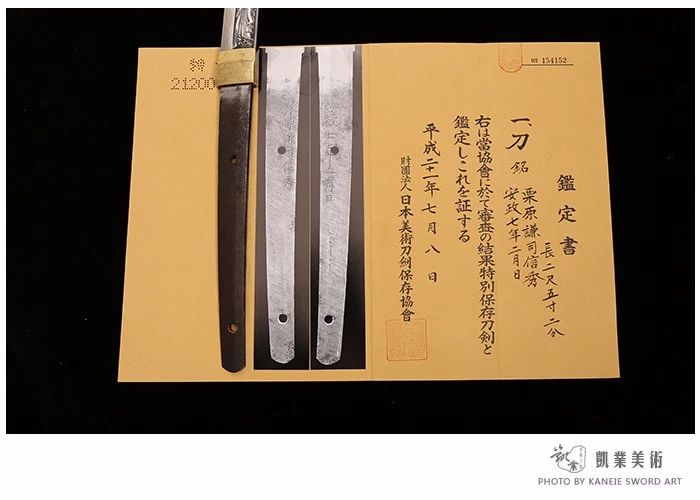 21200
栗原謙司信秀
安政七年二月日
No 154152
鑑定書
一、刀 銘 栗原謙司信秀
安政七年二月日
長二尺五寸二分
右は當協會に於て審査の結果特別保存刀剣と
鑑定しこれを証する
平成二十一年七月八日
財團法人日本美術刀劍保存協會
凱業美術
PHOTO BY KANEIE SWORD ART